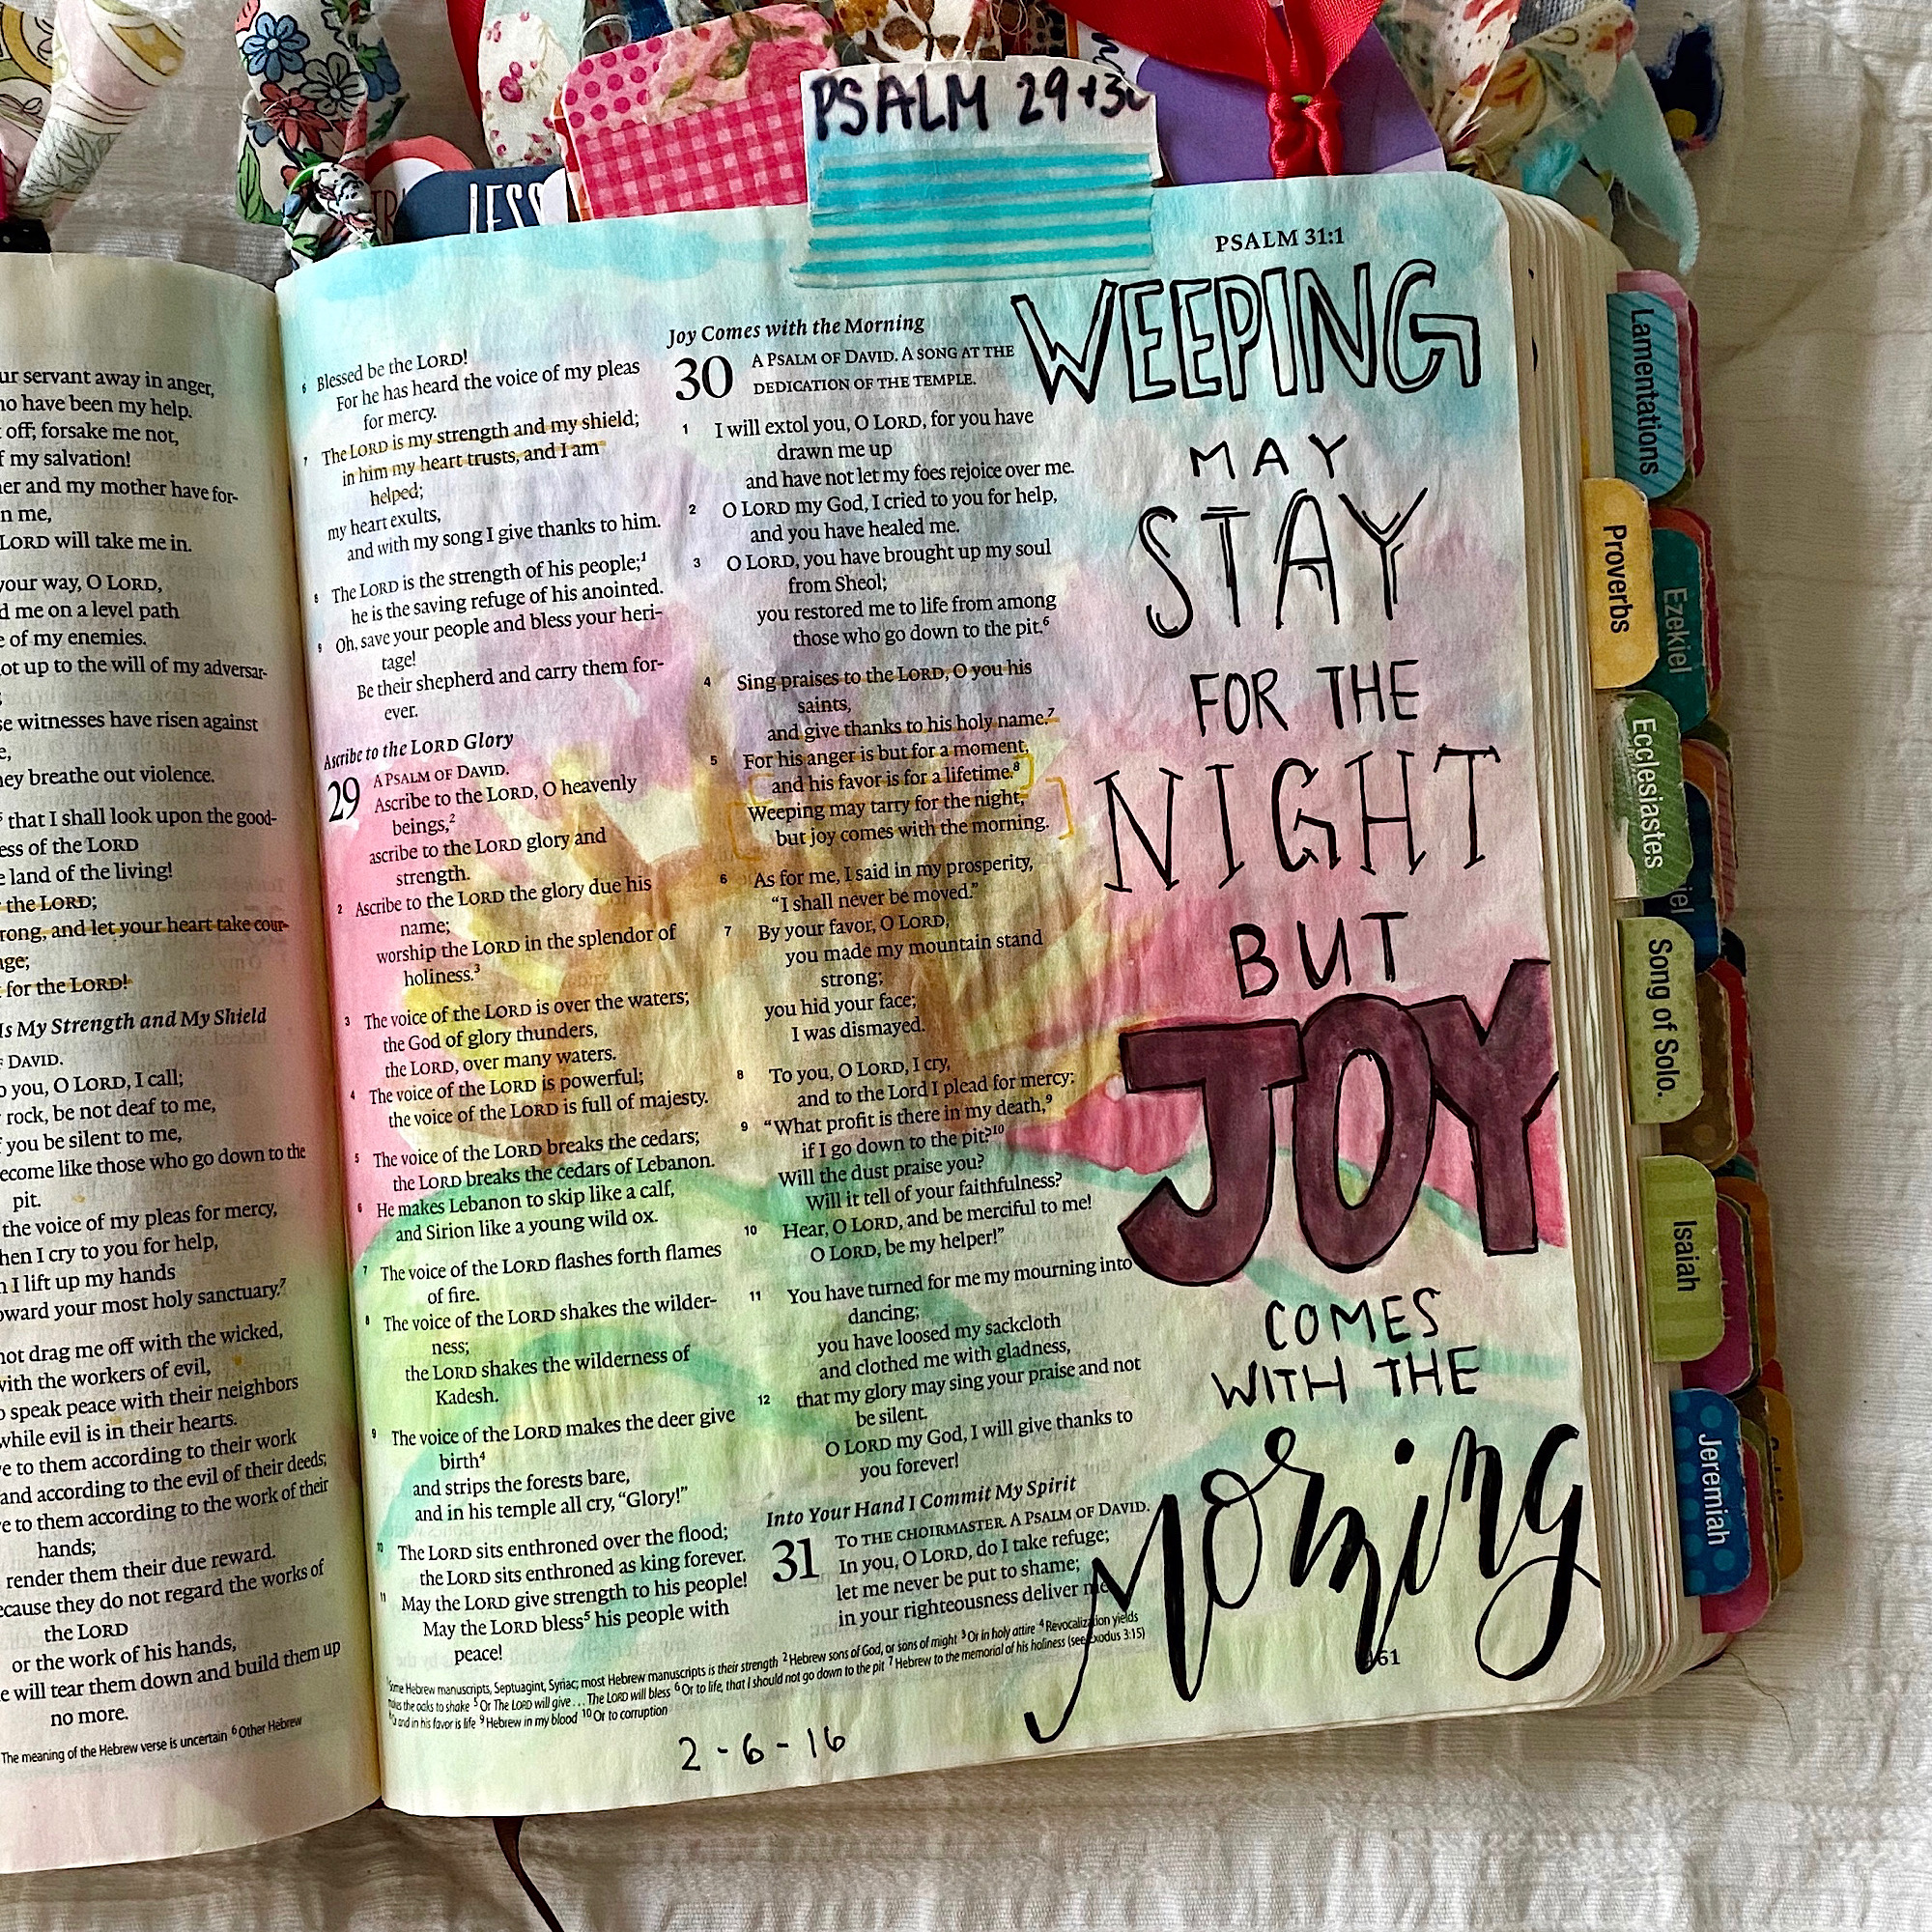 PSALM 29+30
LESS
PSALM 31:1
ur servant away in anger,
no have been my help.
off; forsake me not,
f my salvation!
er and my mother have for-
n me,
LORD will take me in.
your way, O LORD,
d me on a level path
e of my enemies.
ot up to the will of my adversar-
se witnesses have risen against
e,
hey breathe out violence.
that I shall look upon the good-
ess of the LORD
e land of the living!
the LORD;
rong, and let your heart take cour-
age;
for the LORD!
Is My Strength and My Shield
F DAVID.
o you, O LORD, I call;
rock, be not deaf to me,
f you be silent to me,
ecome like those who go down to the
pit.
the voice of my pleas for mercy,
hen I cry to you for help,
n I lift up my hands
oward your most holy sanctuary.7
not drag me off with the wicked,
with the workers of evil,
o speak peace with their neighbors
while evil is in their hearts.
e to them according to their work
and according to the evil of their deeds;
e to them according to the work of their
hands;
render them their due reward.
ecause they do not regard the works of
the LORD
or the work of his hands,
e will tear them down and build them up
no more.
The meaning of the Hebrew verse is uncertain 6 Other Hebrew
6 Blessed be the LORD!
For he has heard the voice of my pleas
for mercy.
7 The LORD is my strength and my shield;
in him my heart trusts, and I am
helped;
my heart exults,
and with my song I give thanks to him.
8 The LORD is the strength of his people;1
he is the saving refuge of his anointed.
9 Oh, save your people and bless your heri-
tage!
Be their shepherd and carry them for-
ever.
Ascribe to the LORD Glory
29 A PSALM OF DAVID.
Ascribe to the LORD, O heavenly
beings,2
ascribe to the LORD glory and
strength.
2 Ascribe to the LORD the glory due his
name;
worship the LORD in the splendor of
holiness.3
3 The voice of the LORD is over the waters;
the God of glory thunders,
the LORD, over many waters.
4 The voice of the LORD is powerful;
the voice of the LORD is full of majesty.
5 The voice of the LORD breaks the cedars;
the LORD breaks the cedars of Lebanon.
6 He makes Lebanon to skip like a calf,
and Sirion like a young wild ox.
7 The voice of the LORD flashes forth flames
of fire.
8 The voice of the LORD shakes the wilder-
ness;
the LORD shakes the wilderness of
Kadesh.
9 The voice of the LORD makes the deer give
birth4
and strips the forests bare,
and in his temple all cry, “Glory!”
10 The LORD sits enthroned over the flood;
the LORD sits enthroned as king forever.
11 May the LORD give strength to his people!
May the LORD bless5 his people with
peace!
Joy Comes with the Morning
30 A PSALM OF DAVID. A SONG AT THE
DEDICATION OF THE TEMPLE.
1 I will extol you, O LORD, for you have
drawn me up
and have not let my foes rejoice over me.
2 O LORD my God, I cried to you for help,
and you have healed me.
3 O LORD, you have brought up my soul
from Sheol;
you restored me to life from among
those who go down to the pit.6
4 Sing praises to the LORD, O you his
saints,
and give thanks to his holy name.7
5 For his anger is but for a moment,
and his favor is for a lifetime.8
Weeping may tarry for the night,
but joy comes with the morning.
6 As for me, I said in my prosperity,
“I shall never be moved.”
7 By your favor, O LORD,
you made my mountain stand
strong;
you hid your face;
I was dismayed.
8 To you, O LORD, I cry,
and to the Lord I plead for mercy:
9 “What profit is there in my death,9
if I go down to the pit?10
Will the dust praise you?
Will it tell of your faithfulness?
10 Hear, O LORD, and be merciful to me!
O LORD, be my helper!”
11 You have turned for me my mourning into
dancing;
you have loosed my sackcloth
and clothed me with gladness,
12 that my glory may sing your praise and not
be silent.
O LORD my God, I will give thanks to
you forever!
Into Your Hand I Commit My Spirit
31 TO THE CHOIRMASTER. A PSALM OF DAVID.
In you, O LORD, do I take refuge;
let me never be put to shame;
in your righteousness deliver me
Some Hebrew manuscripts, Septuagint, Syriac; most Hebrew manuscripts is their strength 2 Hebrew sons of God, or sons of might 3 Or in holy attire 4 Revocalization yields
makes the oaks to shake 5 Or The LORD will give . . . The LORD will bless 6 Or to life, that I should not go down to the pit 7 Hebrew to the memorial of his holiness (see Exodus 3:15)
8 Or and in his favor is life 9 Hebrew in my blood 10 Or to corruption
61
2-6-16
WEEPING
MAY
STAY
FOR THE
NIGHT
BUT
JOY
COMES
WITH THE
Morning
Lamentations
Proverbs
Ezekiel
Ecclesiastes
iel
Song of Solo.
Isaiah
Jeremiah